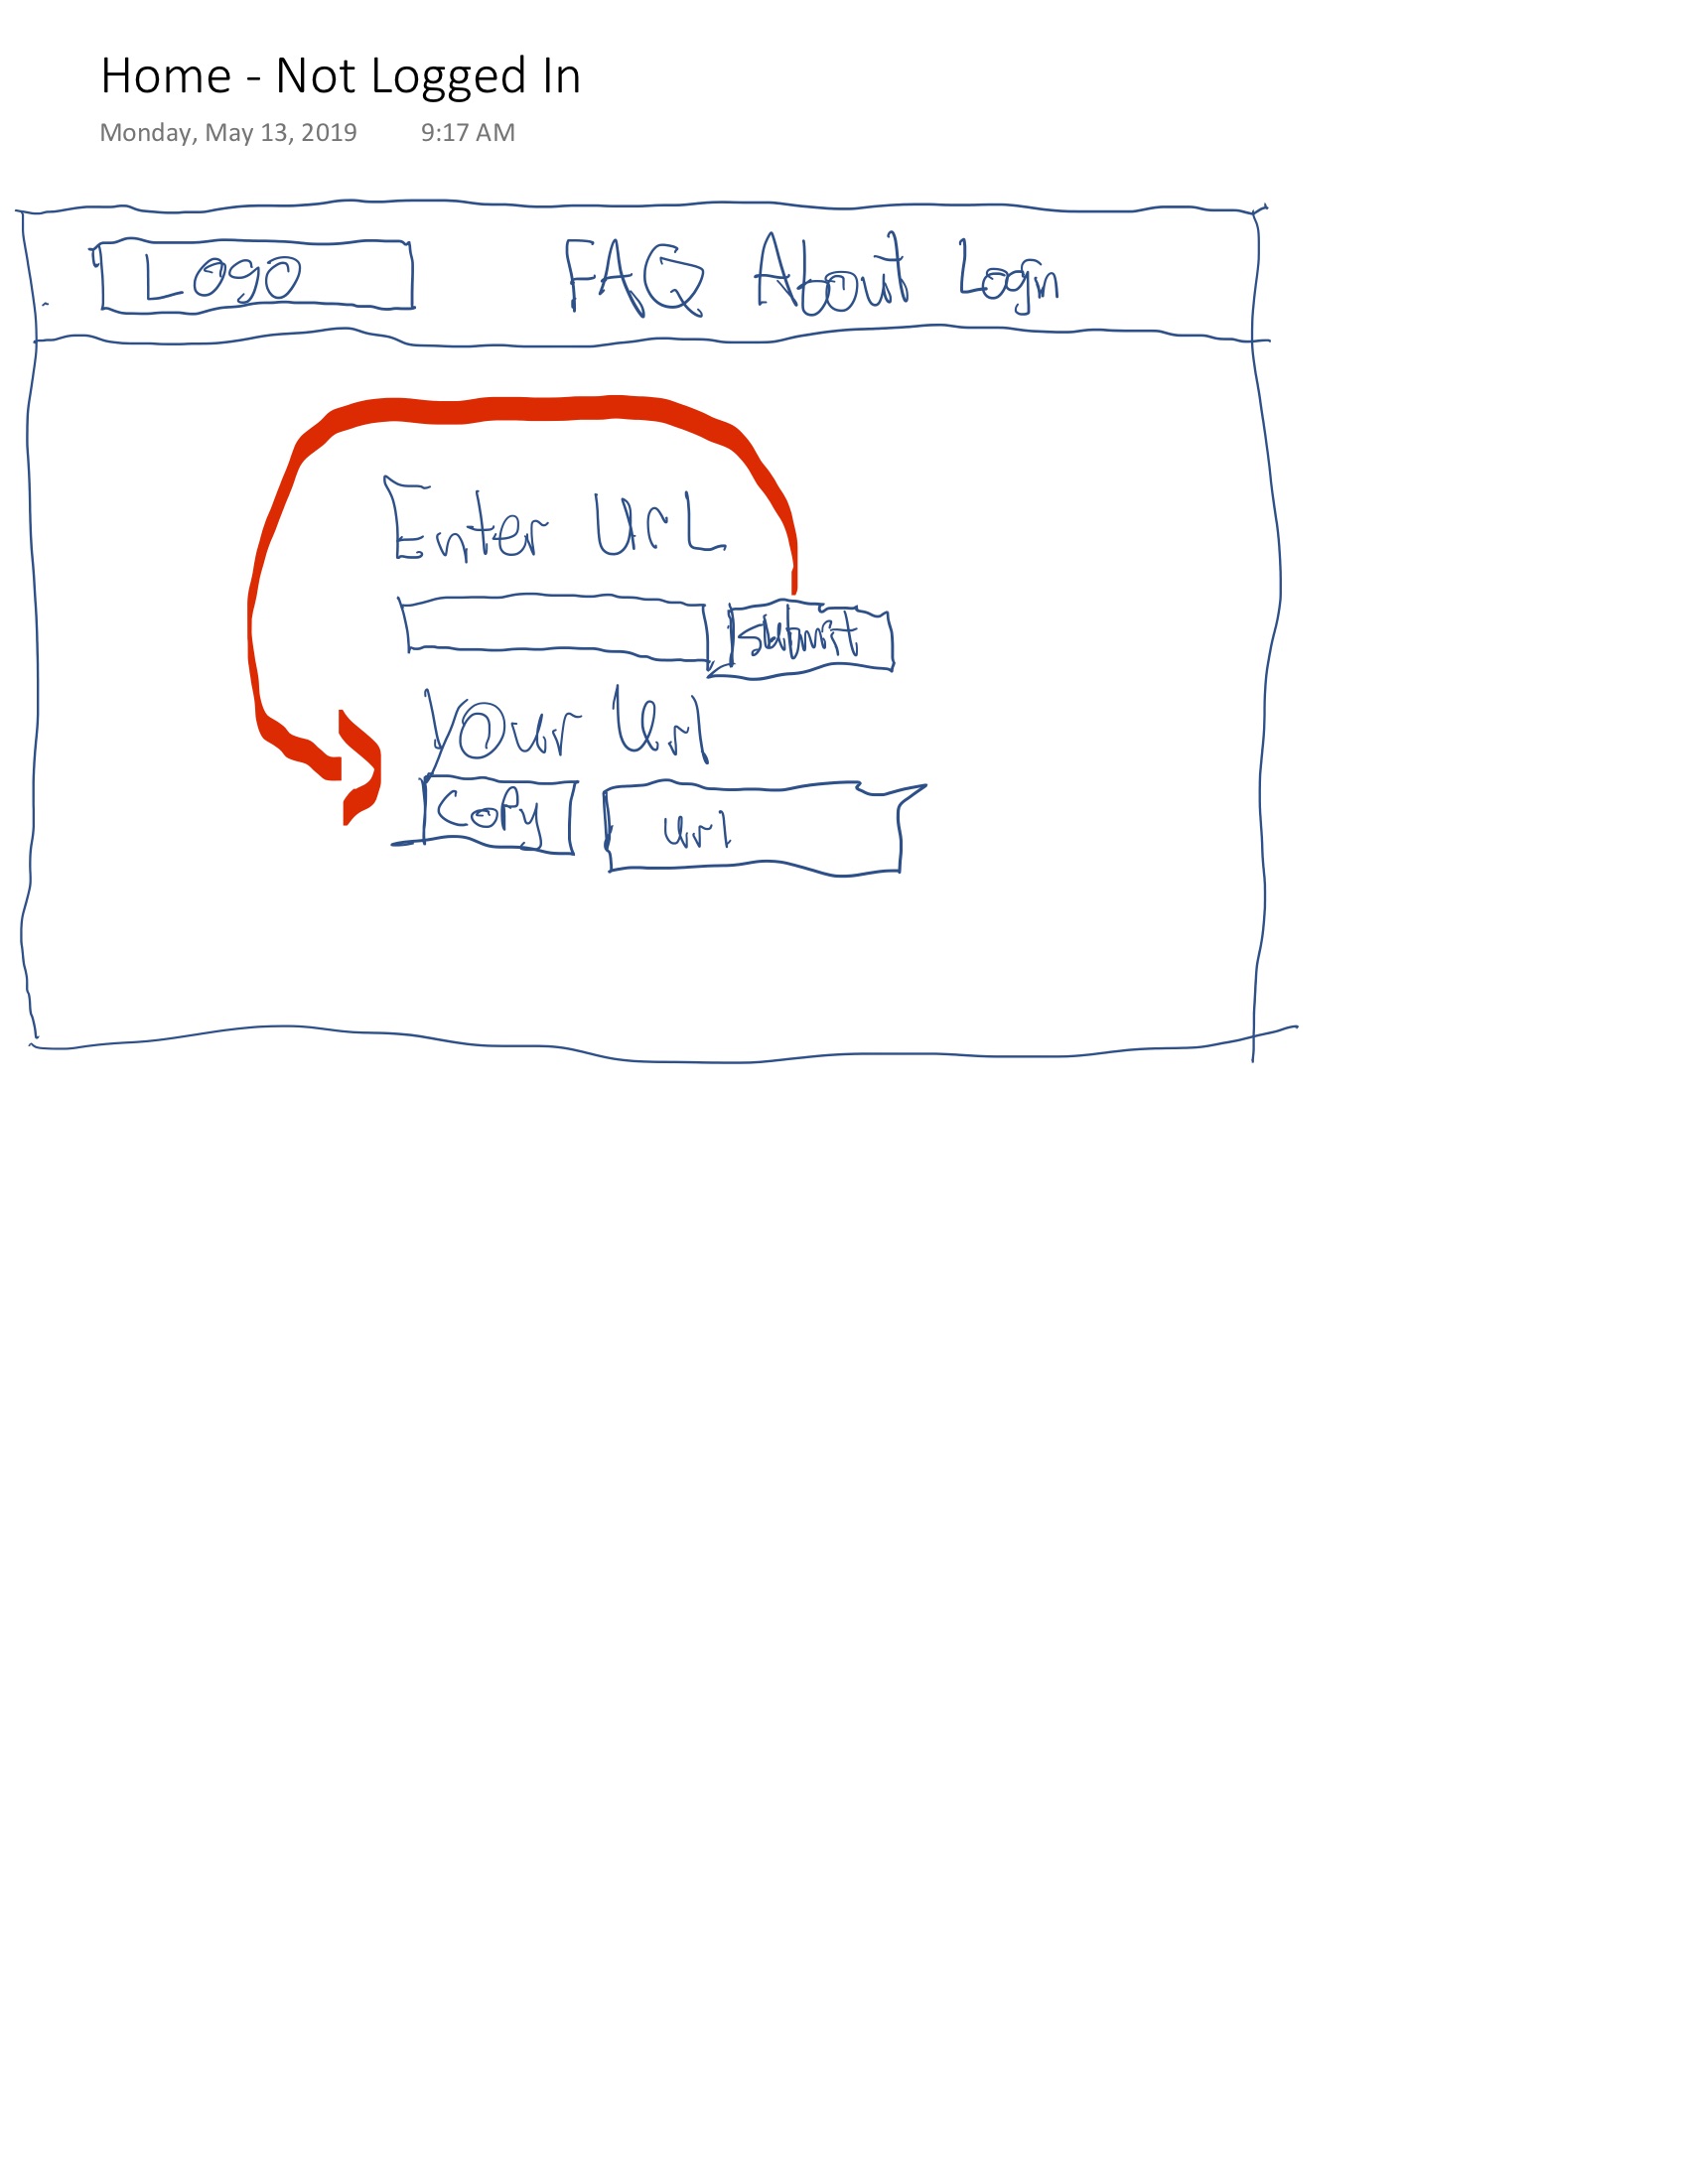 Home - Not Logged In
Monday, May 13, 2019 9:17 AM
Logo FAQ About Login
Enter UrL
Submit
Your Url
Copy url